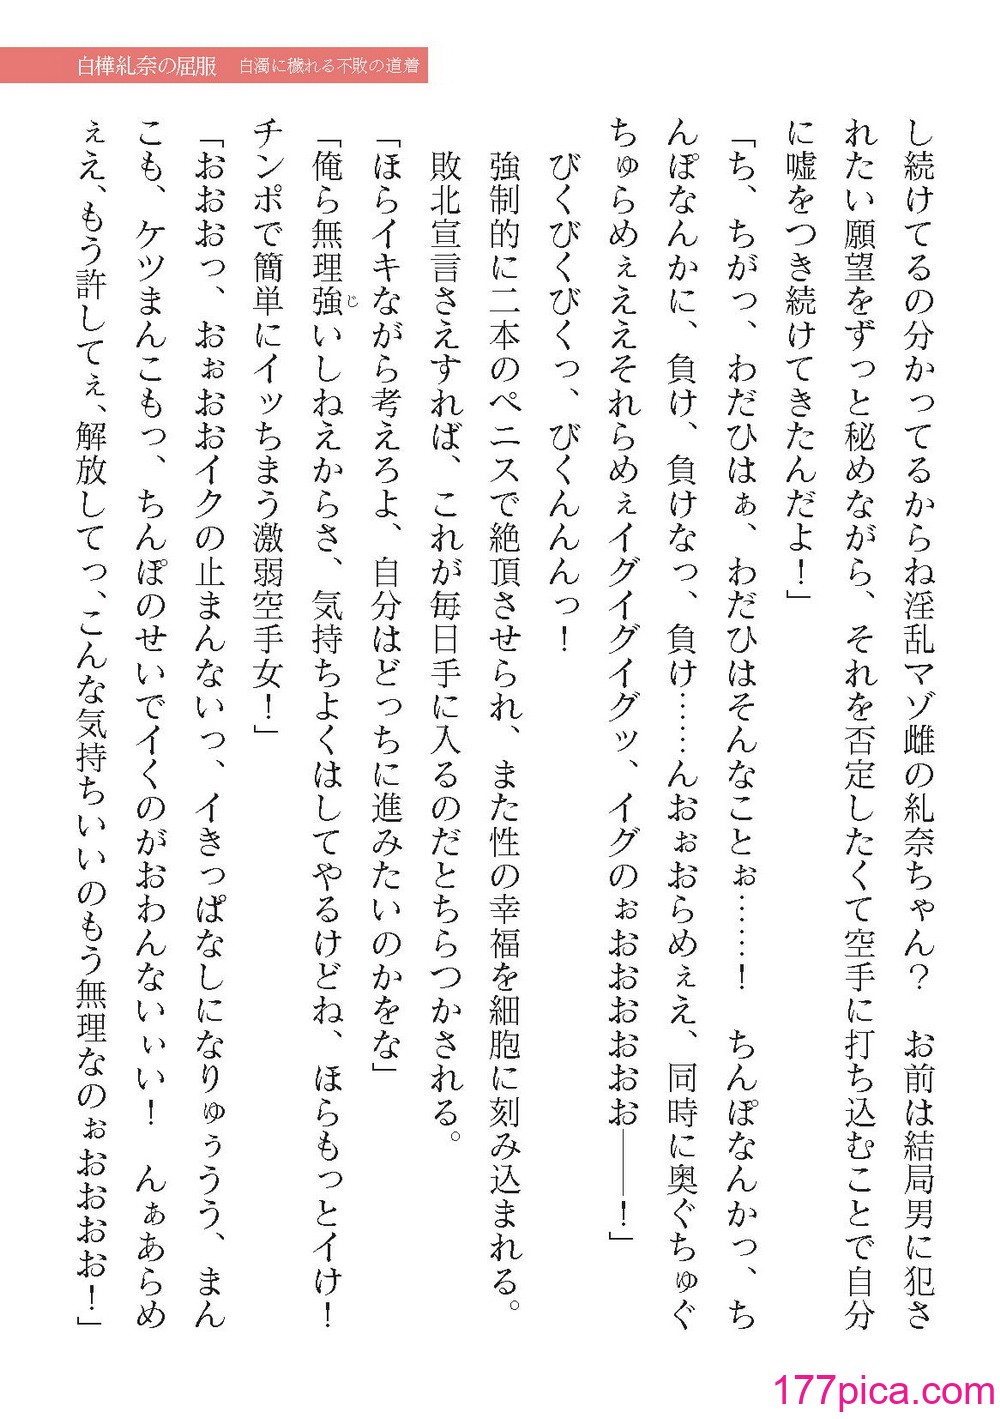 白樺糺奈の屈服　白濁に穢れる不敗の道着
し続けてるの分かってるからね淫乱マゾ雌の糺奈ちゃん？　お前は結局男に犯さ
れたい願望をずっと秘めながら、それを否定したくて空手に打ち込むことで自分
に嘘をつき続けてきたんだよ！」
「ち、ちがっ、わだひはぁ、わだひはそんなことぉ……！　ちんぽなんかっ、ち
んぽなんかに、負け、負けなっ、負け……んおぉおらめぇえ、同時に奥ぐちゅぐ
ちゅらめぇええそれらめぇイグイグイグッ、イグのぉおおおおおお――！」
びくびくびくっ、びくんんんっ！
強制的に二本のペニスで絶頂させられ、また性の幸福を細胞に刻み込まれる。
敗北宣言さえすれば、これが毎日手に入るのだとちらつかされる。
「ほらイキながら考えろよ、自分はどっちに進みたいのかをな」
「俺ら無理強いしねえからさ、気持ちよくはしてやるけどね、ほらもっとイけ！
じ
チンポで簡単にイッちまう激弱空手女！」
「おおおっ、おぉおおイクの止まんないっ、イきっぱなしになりゅぅうう、まん
こも、ケツまんこもっ、ちんぽのせいでイくのがおわんないぃい！　んぁあらめ
ぇえ、もう許してぇ、解放してっ、こんな気持ちいいのもう無理なのぉおおおお！」
177pica.com